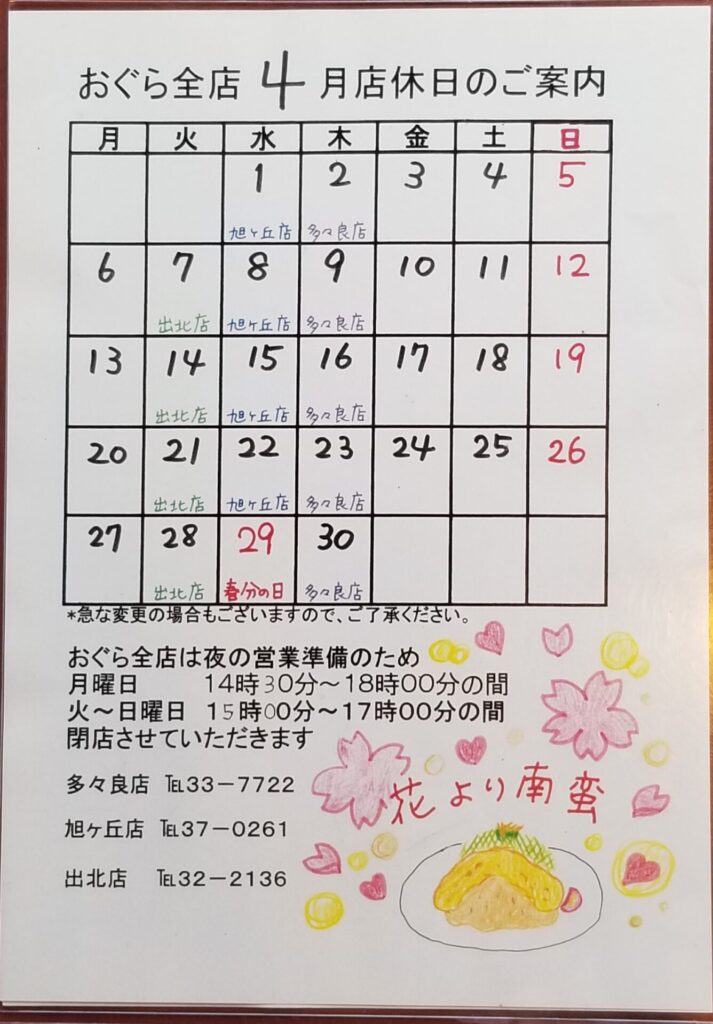 おぐら全店 4 月店休日のご案内
月 火 水 木 金 土 日
1 2 3 4 5
旭ヶ丘店 多々良店
6 7 8 9 10 11 12
出北店 旭ヶ丘店 多々良店
13 14 15 16 17 18 19
出北店 旭ヶ丘店 多々良店
20 21 22 23 24 25 26
出北店 旭ヶ丘店 多々良店
27 28 29 30
出北店 春分の日 多々良店
*急な変更の場合もございますので、ご了承ください。
おぐら全店は夜の営業準備のため
月曜日 14時30分~18時00分の間
火~日曜日 15時00分~17時00分の間
閉店させていただきます
多々良店 ℡33-7722
旭ヶ丘店 ℡37-0261
出北店 ℡32-2136
花より南蛮